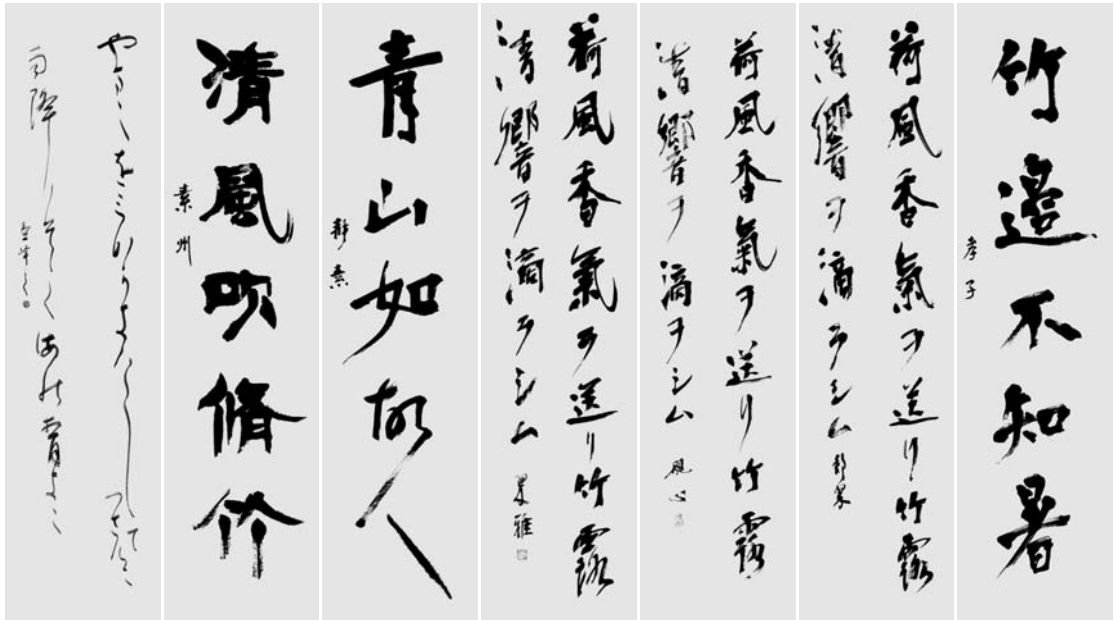 竹邊不知暑
孝子
荷風香氣ヲ送リ竹露
清響ヲ滴ラシム
荷風香氣ヲ送リ竹露
清響ヲ滴ラシム 風心
荷風香氣ヲ送リ竹露
清響ヲ滴ラシム
青山如故人
静素
清風吹脩竹
素州